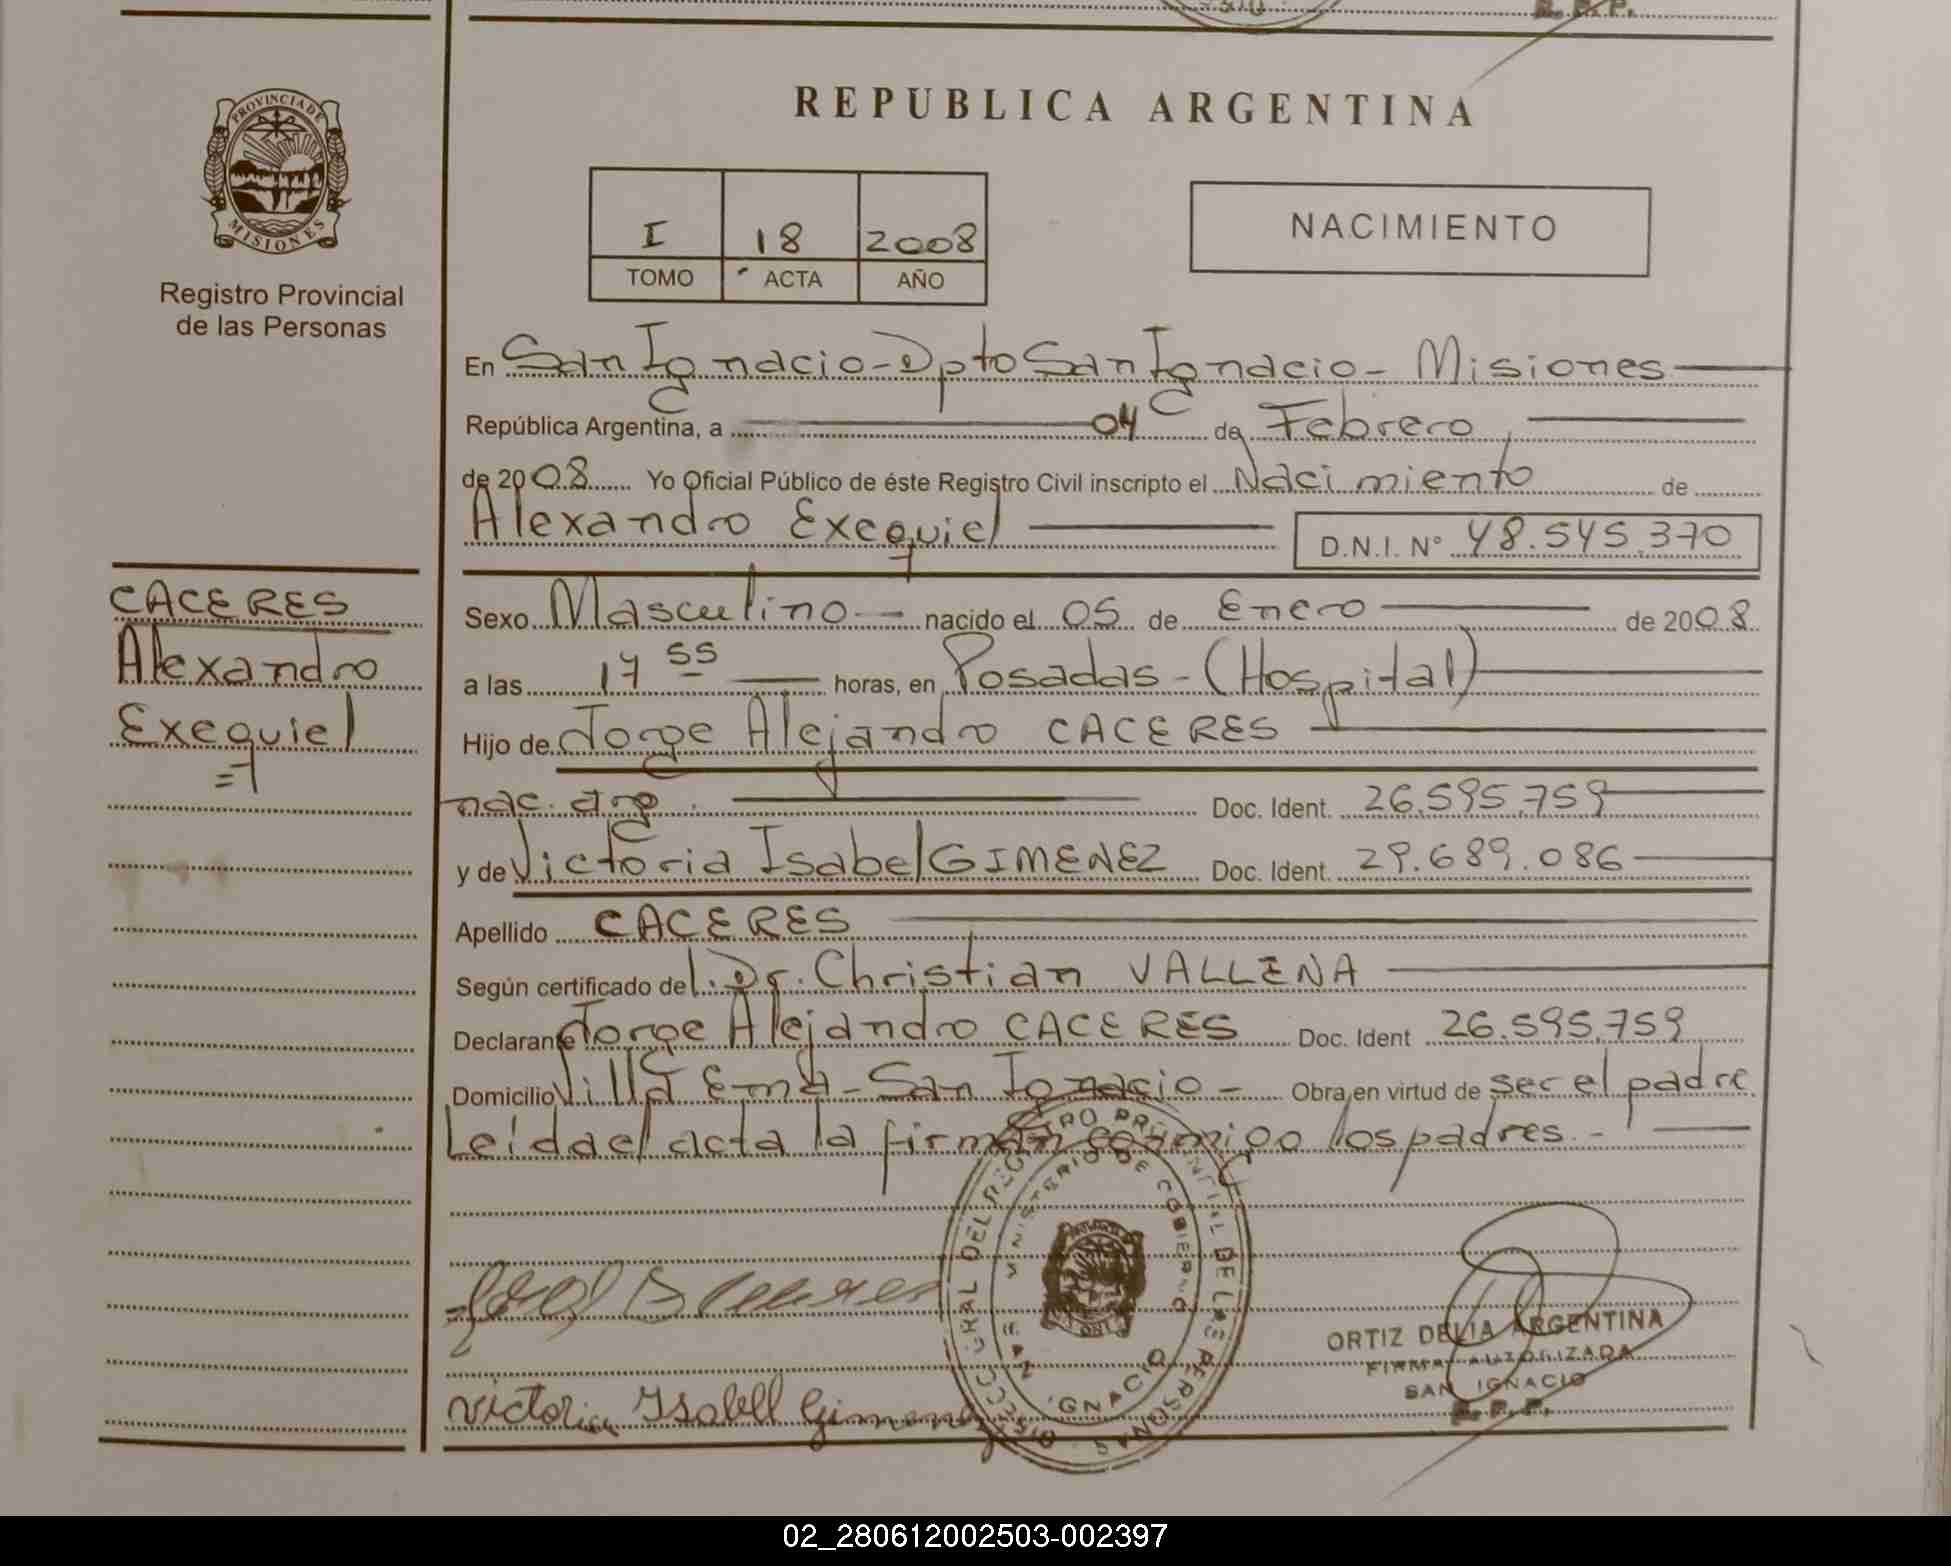 R. P. P.
PROVINCIA DE
MISIONES
Registro Provincial
de las Personas
CACERES
Alexandro
Exequiel
REPUBLICA ARGENTINA
I 18 2008
TOMO ACTA AÑO
NACIMIENTO
En San Ignacio - Dpto San Ignacio - Misiones
República Argentina, a 04 de Febrero
de 2008 Yo Oficial Público de éste Registro Civil inscripto el Nacimiento de
Alexandro Exequiel D.N.I. N° 48.545.370
Sexo Masculino nacido el 05 de Enero de 2008
a las 17 55 horas, en Posadas - (Hospital)
Hijo de Jorge Alejandro CACERES
nac. arg. Doc. Ident. 26.595.759
y de Victoria Isabel GIMENEZ Doc. Ident. 29.689.086
Apellido CACERES
Según certificado del Dr. Christian VALLENA
Declarante Jorge Alejandro CACERES Doc. Ident 26.595.759
Domicilio Villa Ema - San Ignacio - Obra en virtud de ser el padre
Leida el acta la firman conmigo los padres. -
MINISTERIO DE GOBIERNO
IGNACIO
ORTIZ DELIA ARGENTINA
FIRMA AUTORIZADA
SAN IGNACIO
R. P. P.
Victoria Isabell Gimenez
02_280612002503-002397